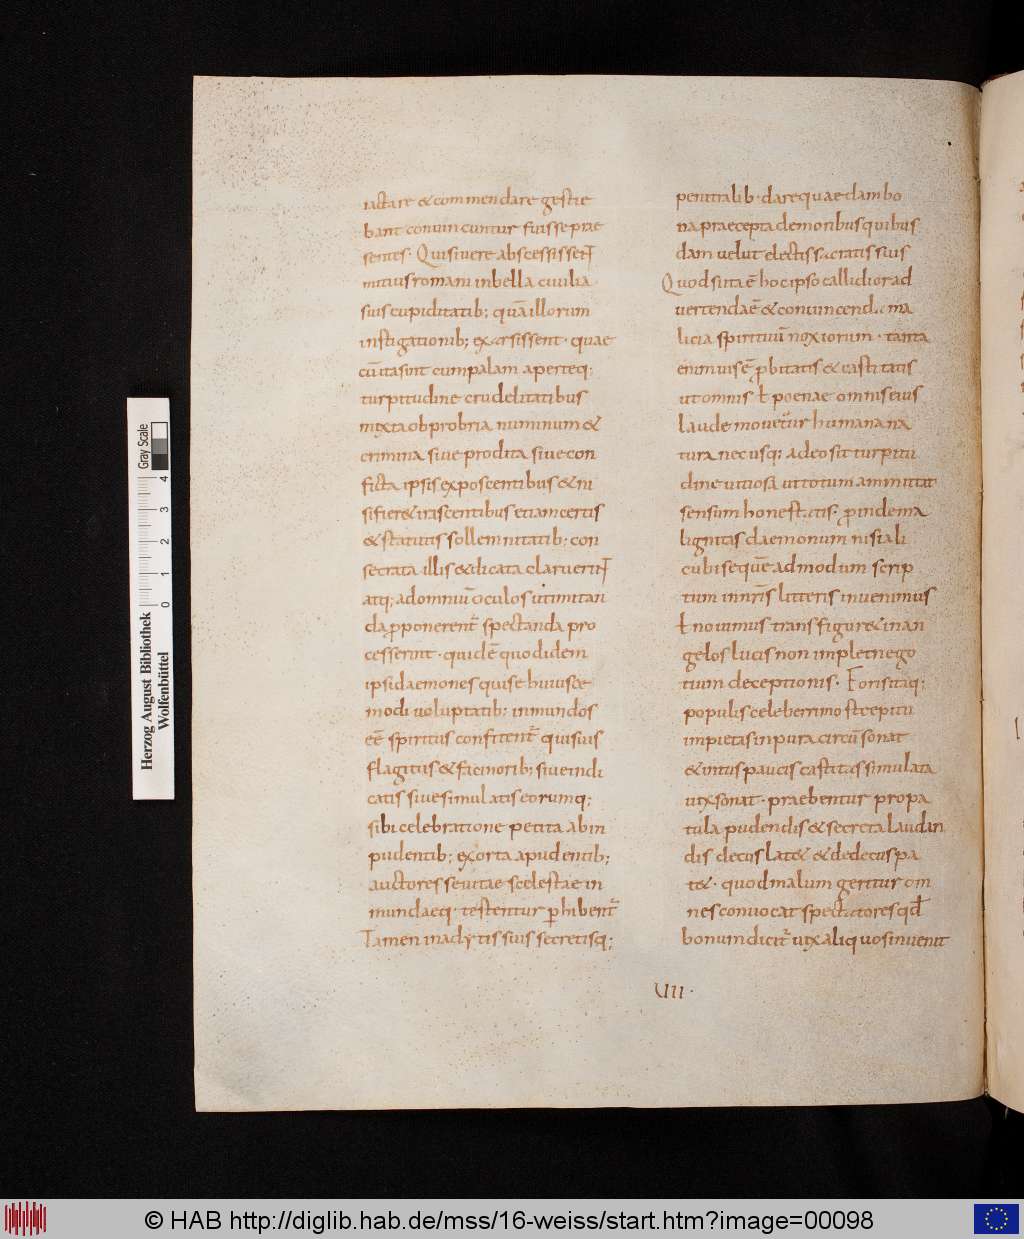 iactare & commendare gestie
bant conuincuntur fuisse prae
sentes· Qui si uere abscessissent
mitius romam in bella ciuilia
suis cupiditatib; quā illorum
instigationib; exarsissent· quae
cū ita sint cum palam aperteq;
turpitudine crudelitatibus
mixta obprobria numinum &
crimina siue prodita siue con
ficta ipsis exposcentibus & ni
si fier& irascentibus etiam certis
& statutis sollemnitatib; con
secrata illis & dicata claruerint
atq; ad omniū oculos ut imitan
da ꝓponerent̄ spectanda pro
cesserint· quid ē quod idem
ipsi daemones qui se huiusce
modi uoluptatib; inmundos
eē spiritus confitent̄ qui suis
flagitiis & facinorib; siue indi
catis siue simulatis eorumq;
sibi celebratione petita ab in
pudentib; exorta a pudentib;
auctores se uitae scelestae in
mundaeq· testentur ꝑhibent̄
Tamen in adytis suis secretisq;
penitralib· dare quaedam bo
na praecepta de moribus quibus
dam uelut electis sacratis suis
Quod si ita ē hoc ipso callidior ad
uertenda ē & conuincenda ma
licia spirituū noxiorum· tanta
enim uis ē ꝓbitatis & castitatis
ut omnis ł poenae omnis eius
laude moueatur humana na
tura nec usq; adeo sit turpitu
dine uitiosa ut totum ammittat
sensum honestatis; proinde ma
lignitas daemonum nisi ali
cubi se quē ad modum scrip
tum in nr̄is litteris inuenimus
ł nouimus transfigur& in an
gelos lucis non implet nego
tium deceptionis· Foris itaq;
populis celeberrimo strepitu
impietas inpura circū sonat
& intus paucis castitas simulata
uix sonat· praebentur propa
tula pudendis & secreta laudan
dis decus lat& & dedecus pa
t&· quod malum geritur om
nes conuocat spectatores qd̄
bonum dicit̄ uix aliquos inuenit
VIII·
Gray Scale
4
3
2
1
0
Herzog August Bibliothek
Wolfenbüttel
© HAB http://diglib.hab.de/mss/16-weiss/start.htm?image=00098